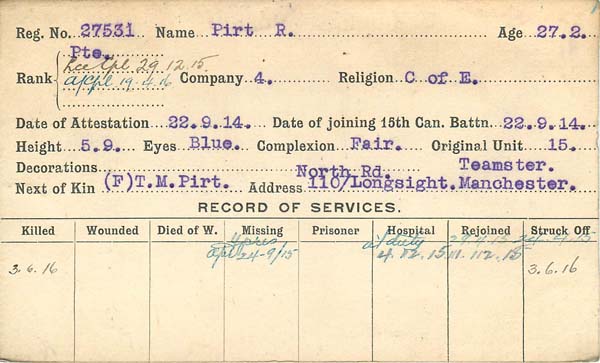 Reg. No. 27531 Name Pirt R. Age 27.2.
Pte.
Lce Cpl 29.12.15
Rank a/Cpl 19.4.16 Company 4. Religion C of E.
Date of Attestation 22.9.14. Date of joining 15th Can. Battn. 22.9.14.
Height 5.9. Eyes Blue. Complexion Fair. Original Unit 15.
Decorations North Rd. Teamster.
Next of Kin (F)T.M.Pirt. Address 110/Longsight. Manchester.
RECORD OF SERVICES.
Killed Wounded Died of W. Missing Prisoner Hospital Rejoined Struck Off
Ypres a/duty 29.4.15 24.4.15
3.6.16 Apl 24-9/15 4.12.15 3.6.16